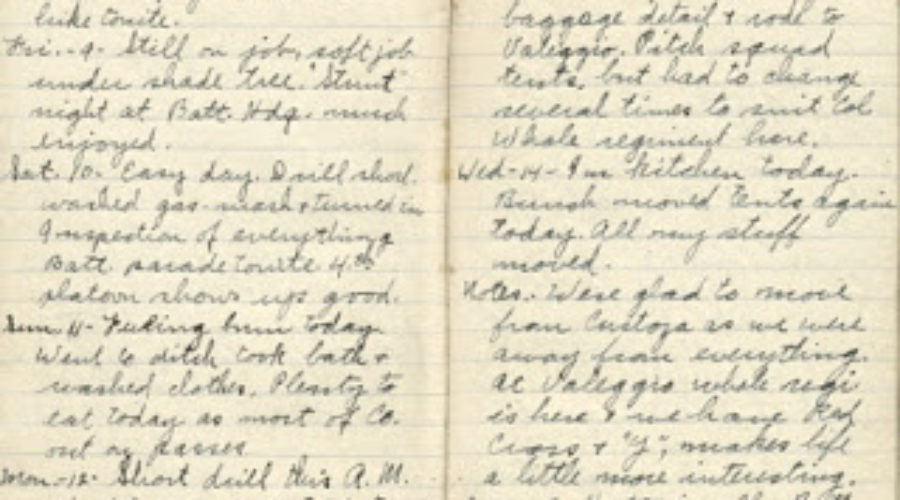 like tonite.
Fri. - 9 - Still on job, soft job
under shade tree. "Stunt"
night at Batt. Hdq. much
enjoyed.
Sat. 10 - Easy day. Drill short.
washed gas-mask & turned in
Inspection of everything
Batt. parade tonite 4th
platoon shows up good.
Sun 11 - Feeling bum today
Went to ditch took bath &
washed clothes. Plenty to
eat today as most of Co.
out on passes
Mon. - 12 - Short drill this A. M.
baggage detail & rode to
Valeggio. Pitch squad
tents, but had to change
several times to suit Col
Whole regiment here.
Wed - 14 - I'm kitchen today.
Bunch moved tents again
today. All my stuff
moved.
Notes. - Were glad to move
from Custoza as we were
away from everything.
At Valeggio whole regi
is here & we have Red
Cross & "Y", makes life
a little more interesting.